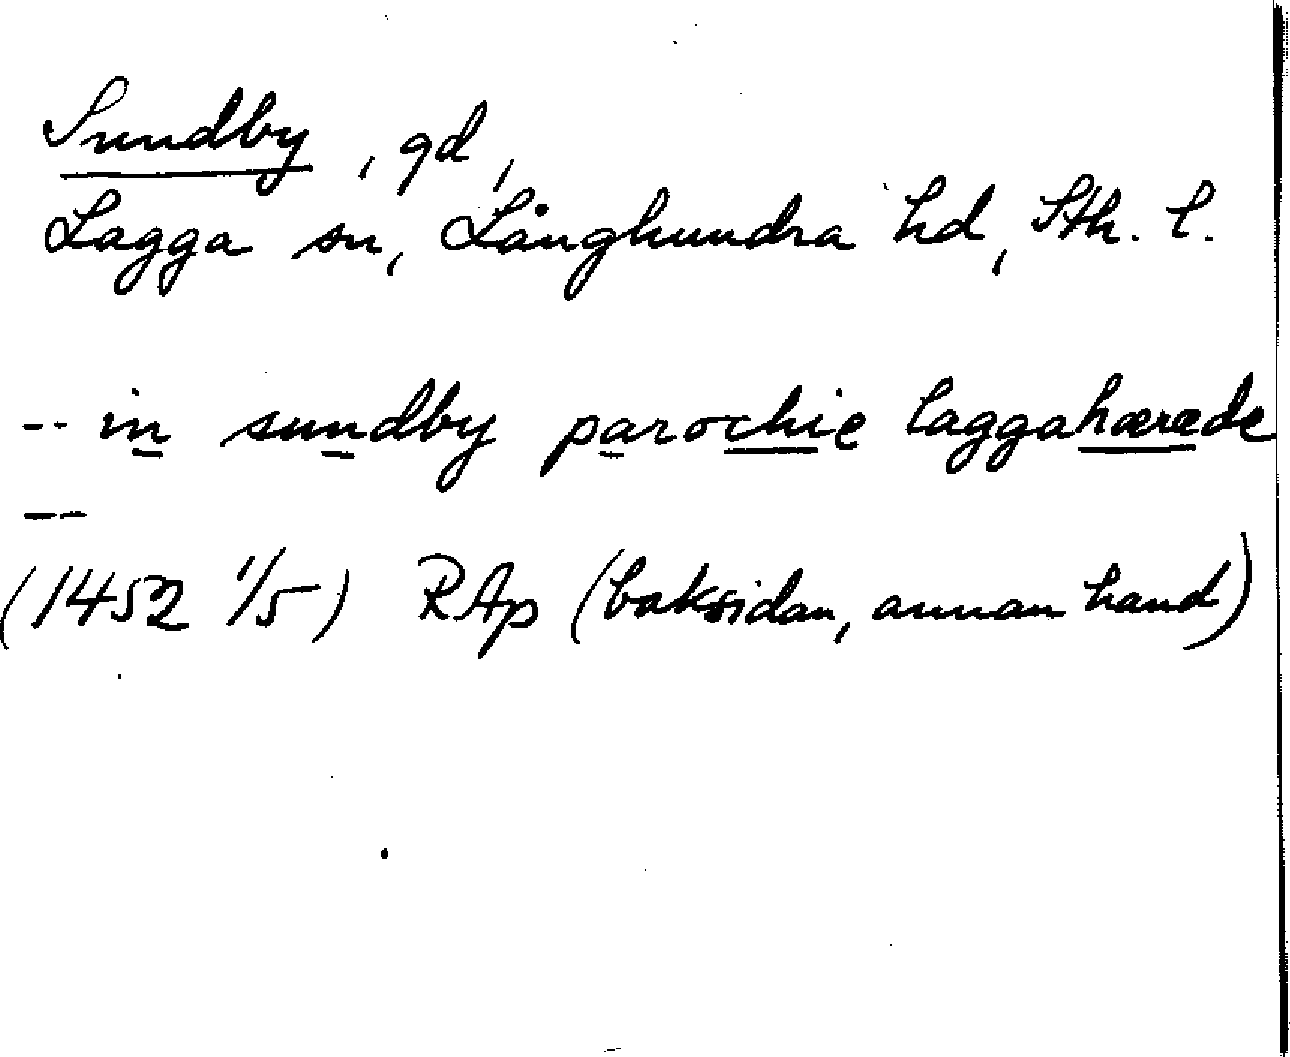 Sundby, gd,
Lagga sn, Långhundra hd, Sth. l.
-- in sundby parochie laggahærede
--
(1452 1/5) RAp (baksidan, annan hand)